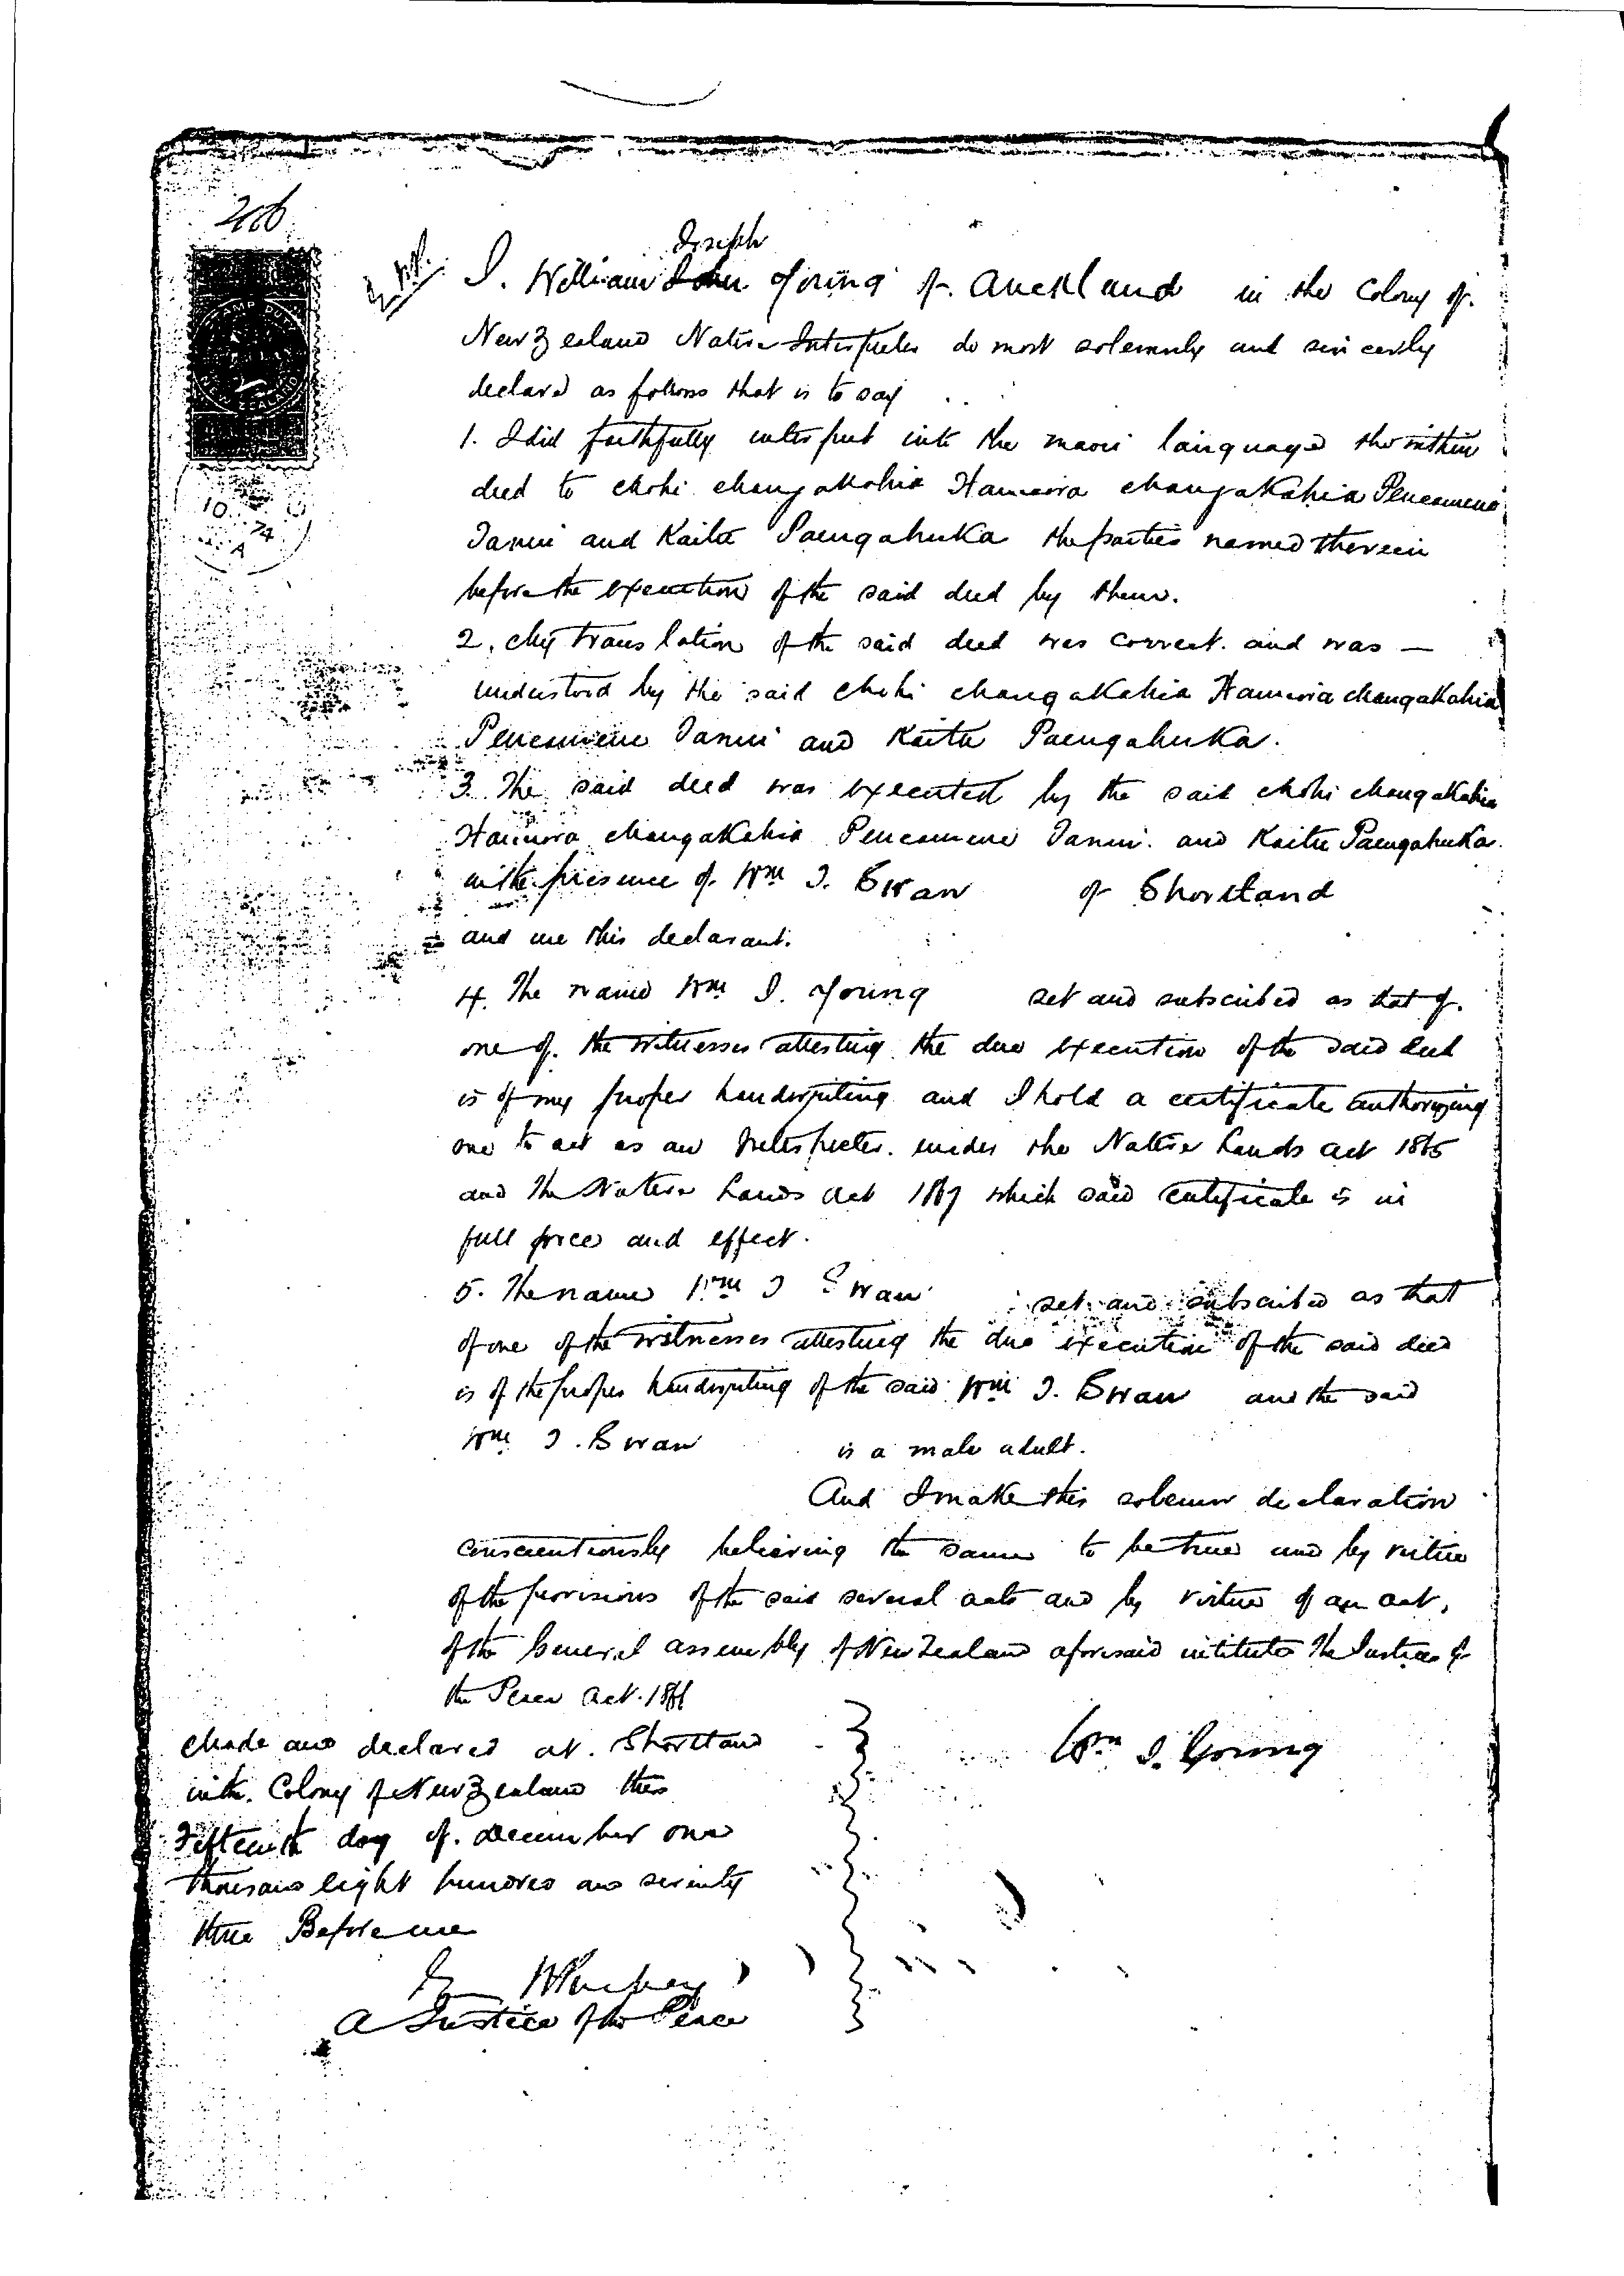 Joseph
I. William John Young of Auckland in the Colony of
New Zealand Native Interpreter do most solemnly and sincerely
declare as follows that is to say
1. I did faithfully interpret into the maori language the within
deed to Mohi Mangakahia Hamiora Mangakahia Peneamene
Tanui and Kaitu Paengahuka the parties named therein
before the execution of the said deed by them.
2. My translation of the said deed was correct. and was —
understood by the said Mohi Mangakahia Hamiora Mangakahia
Peneamene Tanui and Kaitu Paengahuka.
3. The said deed was executed by the said Mohi Mangakahia
Hamiora Mangakahia Peneamene Tanui. and Kaitu Paengahuka.
in the presence of Wm J. Swan of Shortland
and me this declarant.
4. The name Wm J. Young set and subscribed as that of
one of the witnesses attesting the due execution of the said deed
is of my proper handwriting and I hold a certificate authorizing
me to act as an Interpreter. under the Native Lands Act 1865
and the Native Lands Act 1867 which said certificate is in
full force and effect.
5. The name Wm J Swan set and subscribed as that
of one of the witnesses attesting the due execution of the said deed
is of the proper handwriting of the said Wm J. Swan and the said
Wm J. Swan is a male adult.
And I make this solemn declaration
conscientiously believing the same to be true and by virtue
of the provisions of the said several acts and by virtue of an act,
of the General assembly of New Zealand aforesaid intituled The Justices of
the Peace Act. 1866
Made and declared at. Shortland
in the. Colony of New Zealand this
Fifteenth day of. December one
thousand eight hundred and seventy
three Before me
Wm J. Young
A Justice of the Peace